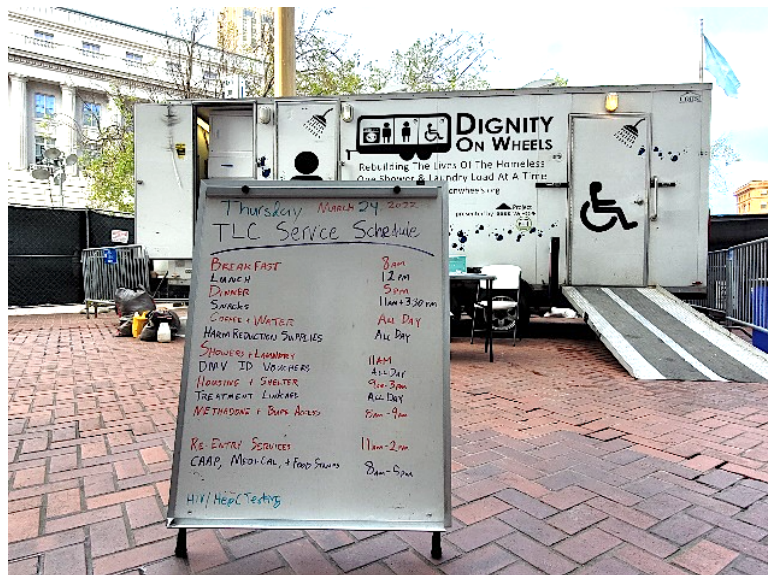 DIGNITY
ON WHEELS
Rebuilding The Lives Of The Homeless
One Shower & Laundry Load At A Time
onwheels.org
presented by
Project
WeHOPE
Thursday MARCH 24 2022
TLC Service Schedule
BREAKFAST 8AM
LUNCH 12 PM
DINNER 5PM
SNACKS 11AM + 3:30 PM
COFFEE + WATER ALL DAY
HARM REDUCTION SUPPLIES ALL DAY
SHOWERS + LAUNDRY 11AM
DMV ID VOUCHERS ALL DAY
HOUSING + SHELTER 9AM-3PM
TREATMENT LINKAGE ALL DAY
METHADONE + BUPE ACCESS 8AM-9AM
RE-ENTRY SERVICES 11AM-2PM
CAAP, MEDI-CAL, + FOOD STAMPS 8AM-5PM
HIV/HepC Testing